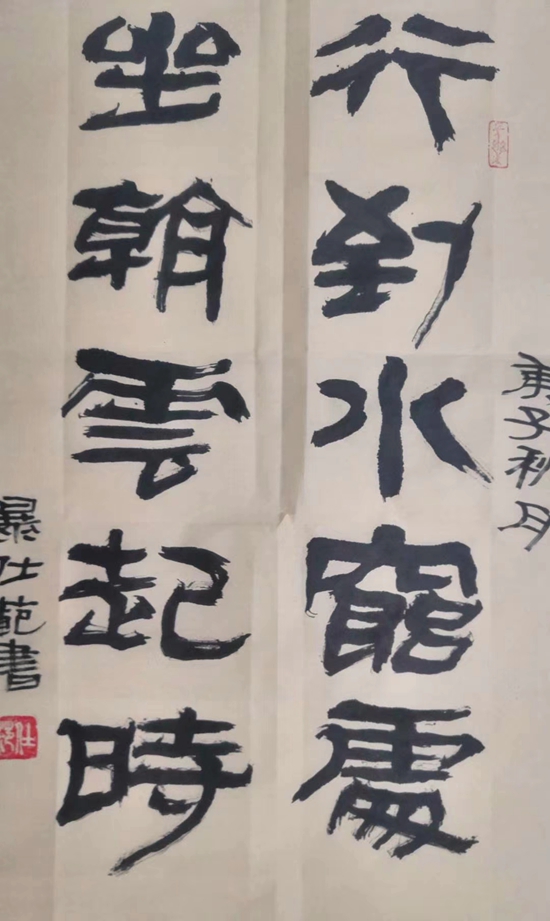 庚子秋月
行到水窮處
坐朝雲起時
仕範書